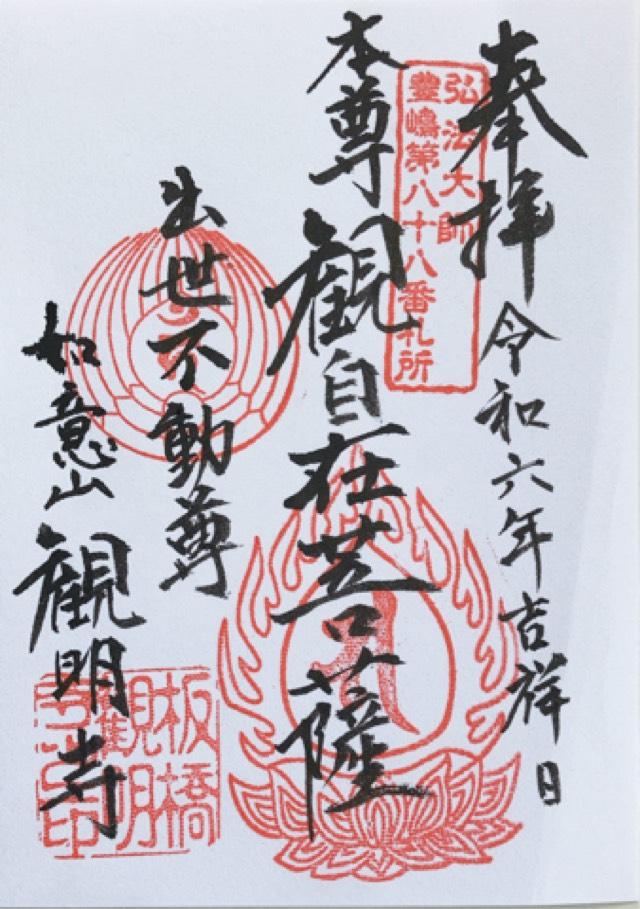 奉拝
令和六年吉祥日
弘法大師
豊嶋第八十八番札所
本尊
観自在菩薩
出世不動尊
如意山
観明寺
板橋
観明